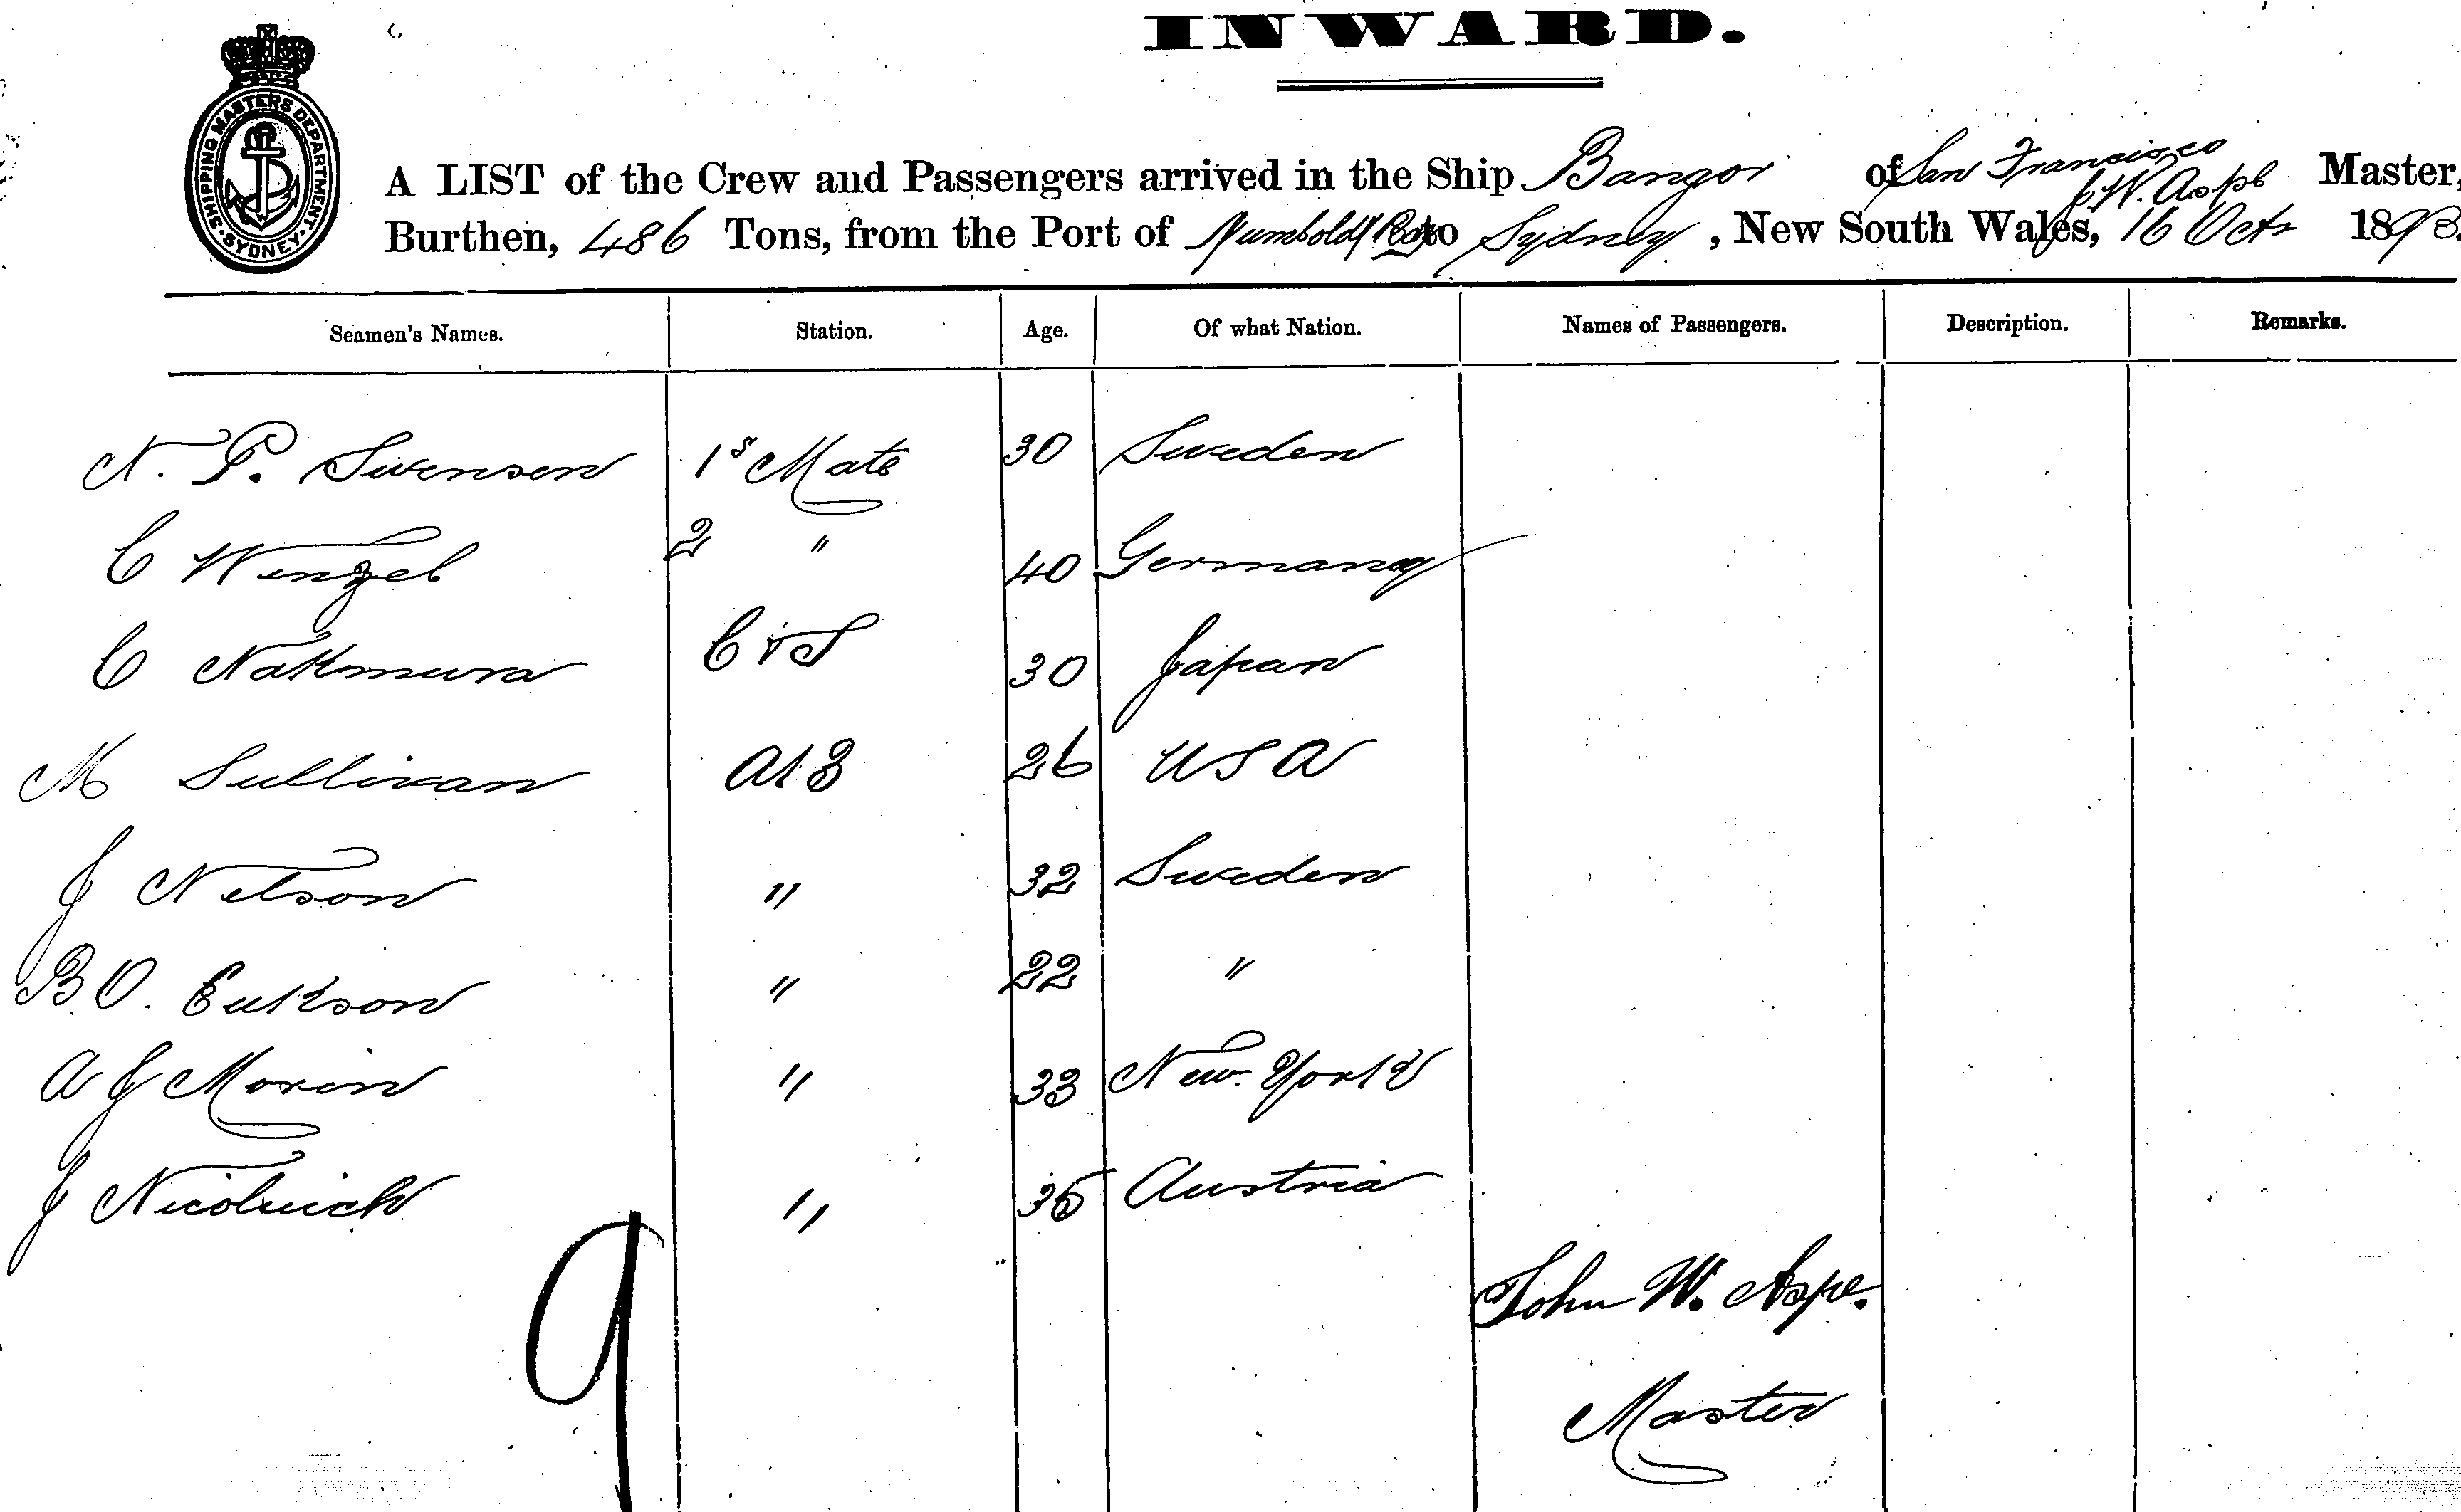 INWARD.
SHIPPING MASTERS DEPARTMENT · SYDNEY ·
A LIST of the Crew and Passengers arrived in the Ship Bangor of San Francisco
J. W. Aspe Master,
Burthen, 486 Tons, from the Port of Humboldt Bay to Sydney, New South Wales, 16 Octr 1898.
Seamen's Names. Station. Age. Of what Nation. Names of Passengers. Description. Remarks.
N. P. Swenson 1s Mate 30 Sweden
C Wenzel 2 " 40 Germany
C Nakmura C & S 30 Japan
M Sullivan AB 26 USA
J Nelson " 32 Sweden
B. O. Erikson " 22 "
A J Morin " 33 New York
J " 35 Austria
9
John W. Aspe.
Master